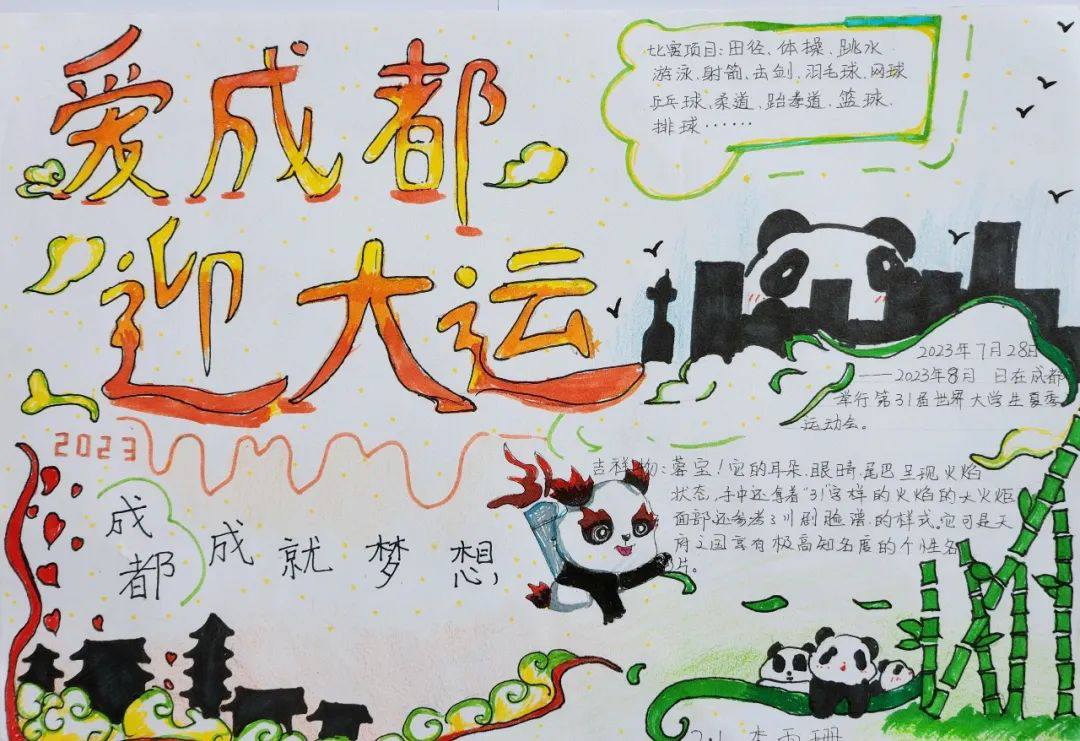 爱成都
迎大运
比赛项目：田径、体操、跳水
游泳、射箭、击剑、羽毛球、网球
乒乓球、柔道、跆拳道、篮球、
排球……
2023年7月28日
——2023年8月 日在成都
举行第31届世界大学生夏季
运动会。
2023
成都成就梦想,
吉祥物：蓉宝！它的耳朵、眼睛、尾巴呈现火焰
状态，手中还拿着"31"字样的火焰的大火炬
面部还参考了川剧脸谱的样式。它可是天
府之国富有极高知名度的个性名
片。
31
2.1